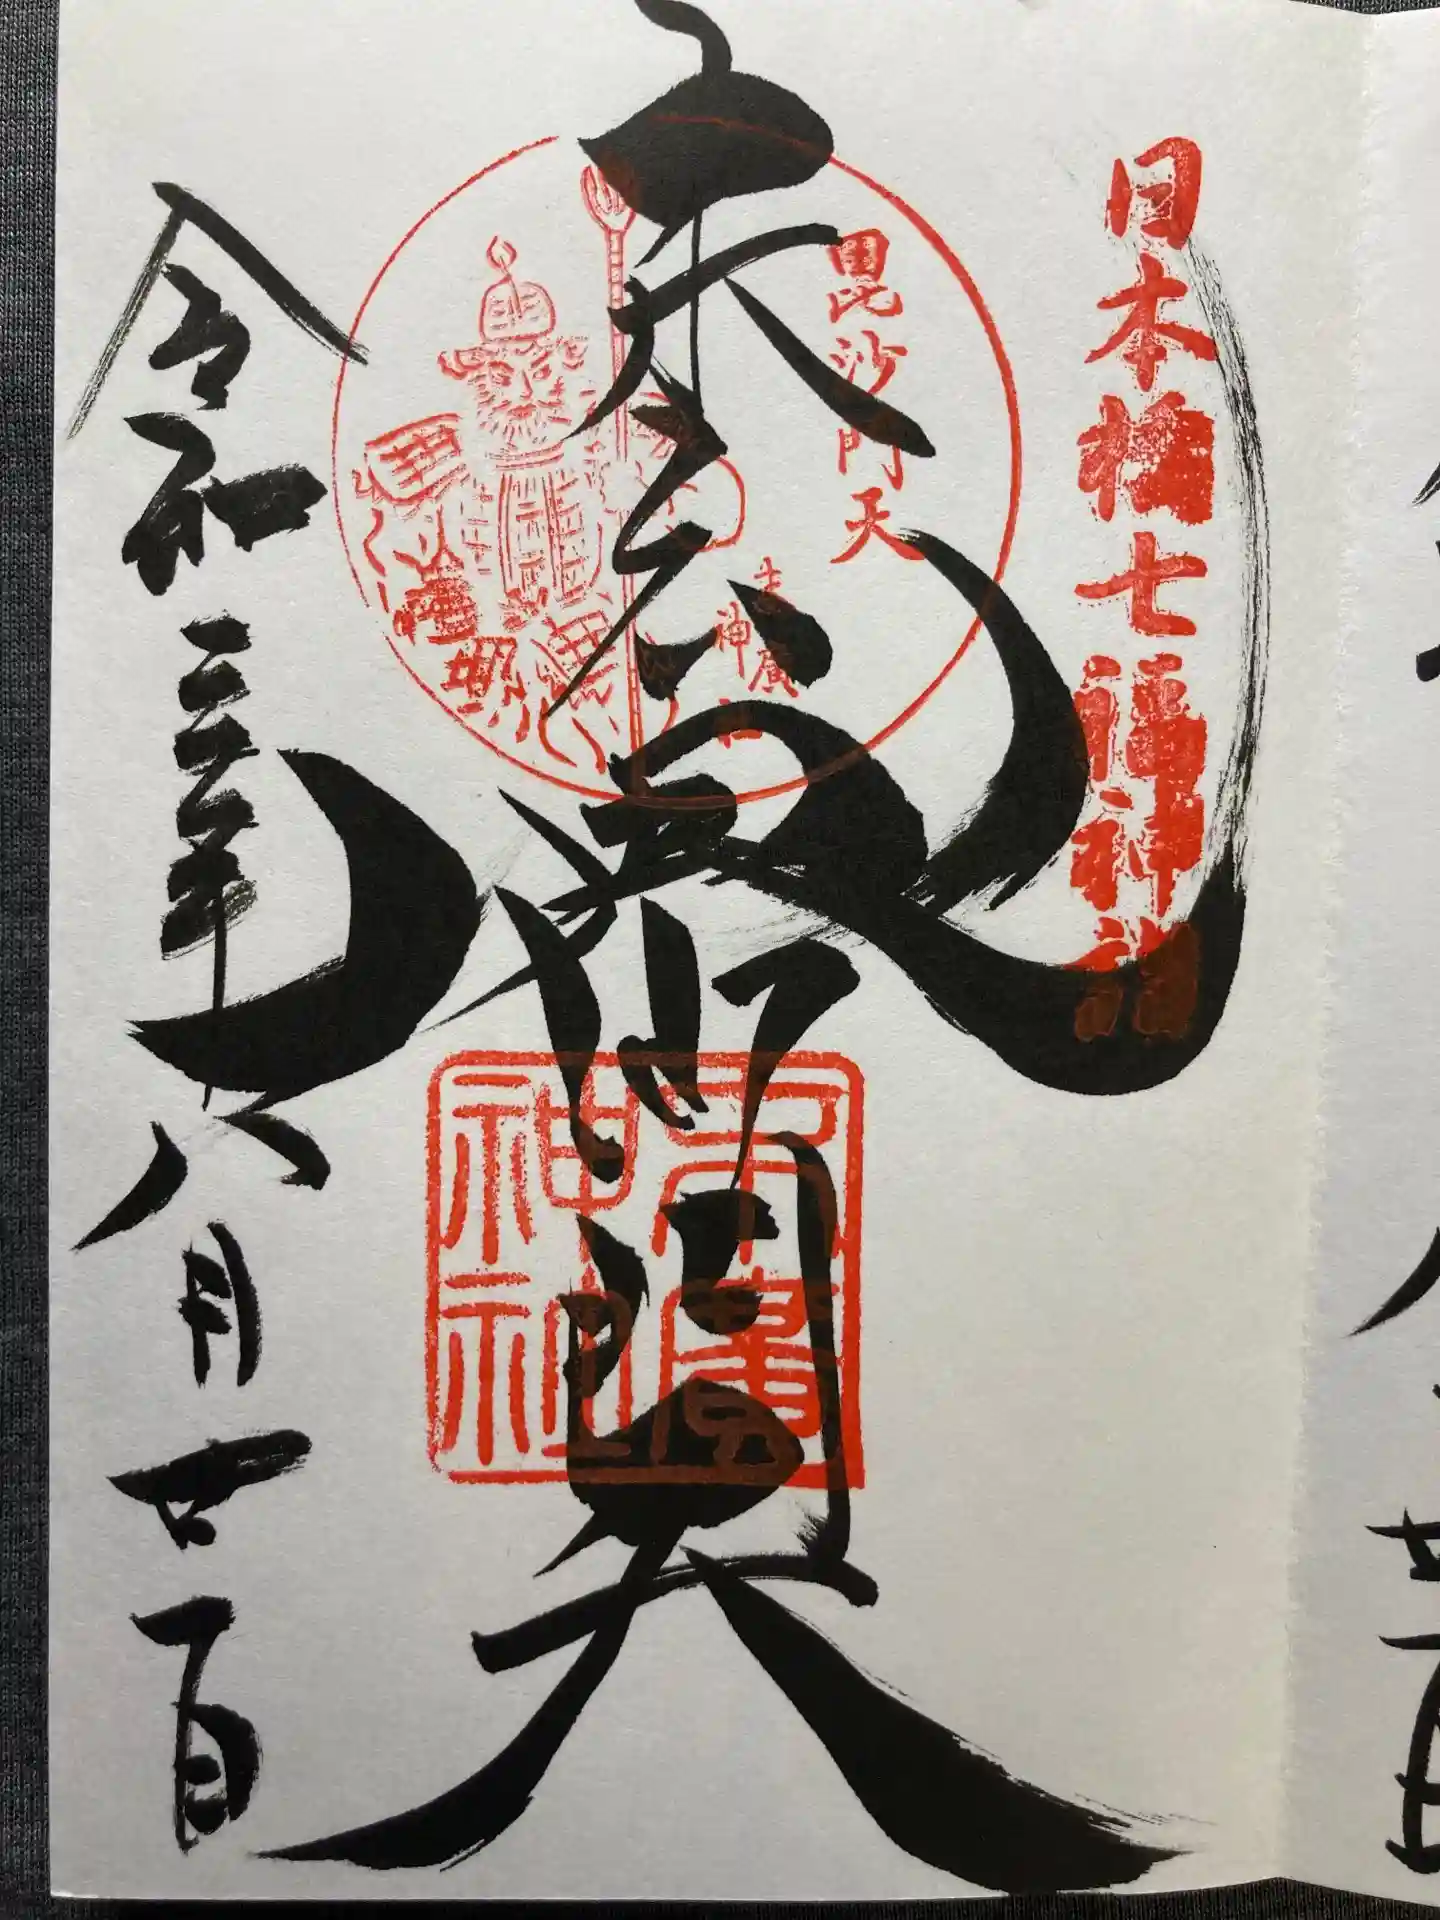 日本橋七福神詣
毘沙門天
末廣神社
末広
毘沙門天
末廣神社
令和三年八月廿一日